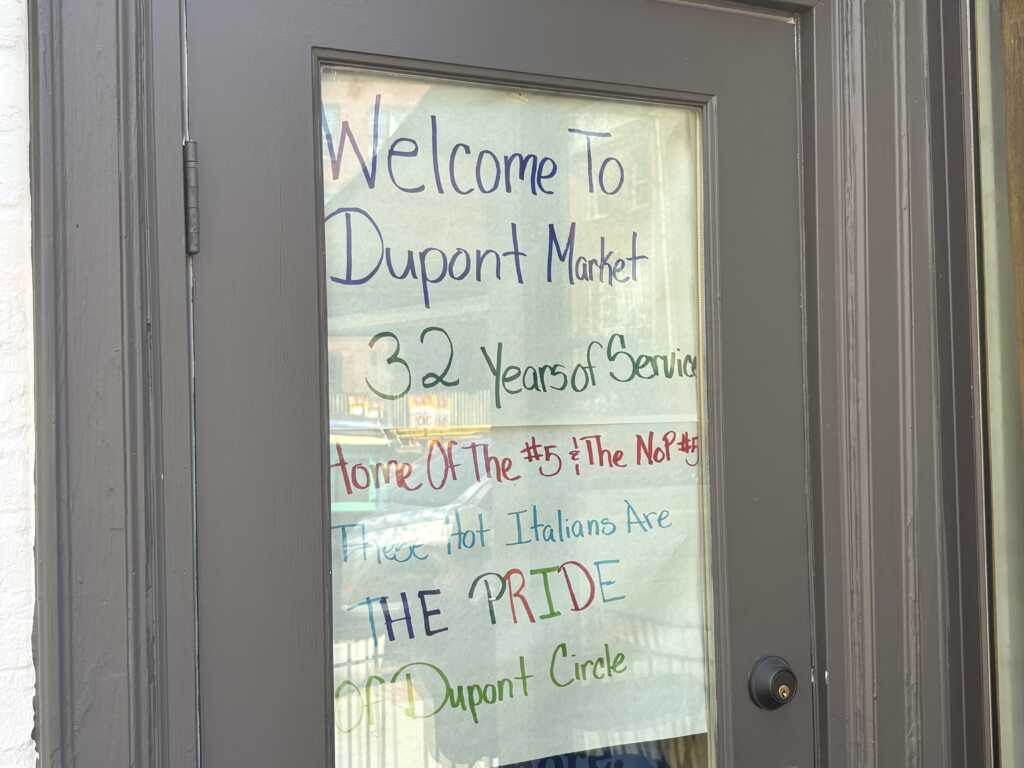 Welcome To
Dupont Market
32 Years of Service
Home Of The #5 & The NoP #5
These Hot Italians Are
THE PRIDE
Of Dupont Circle
more.